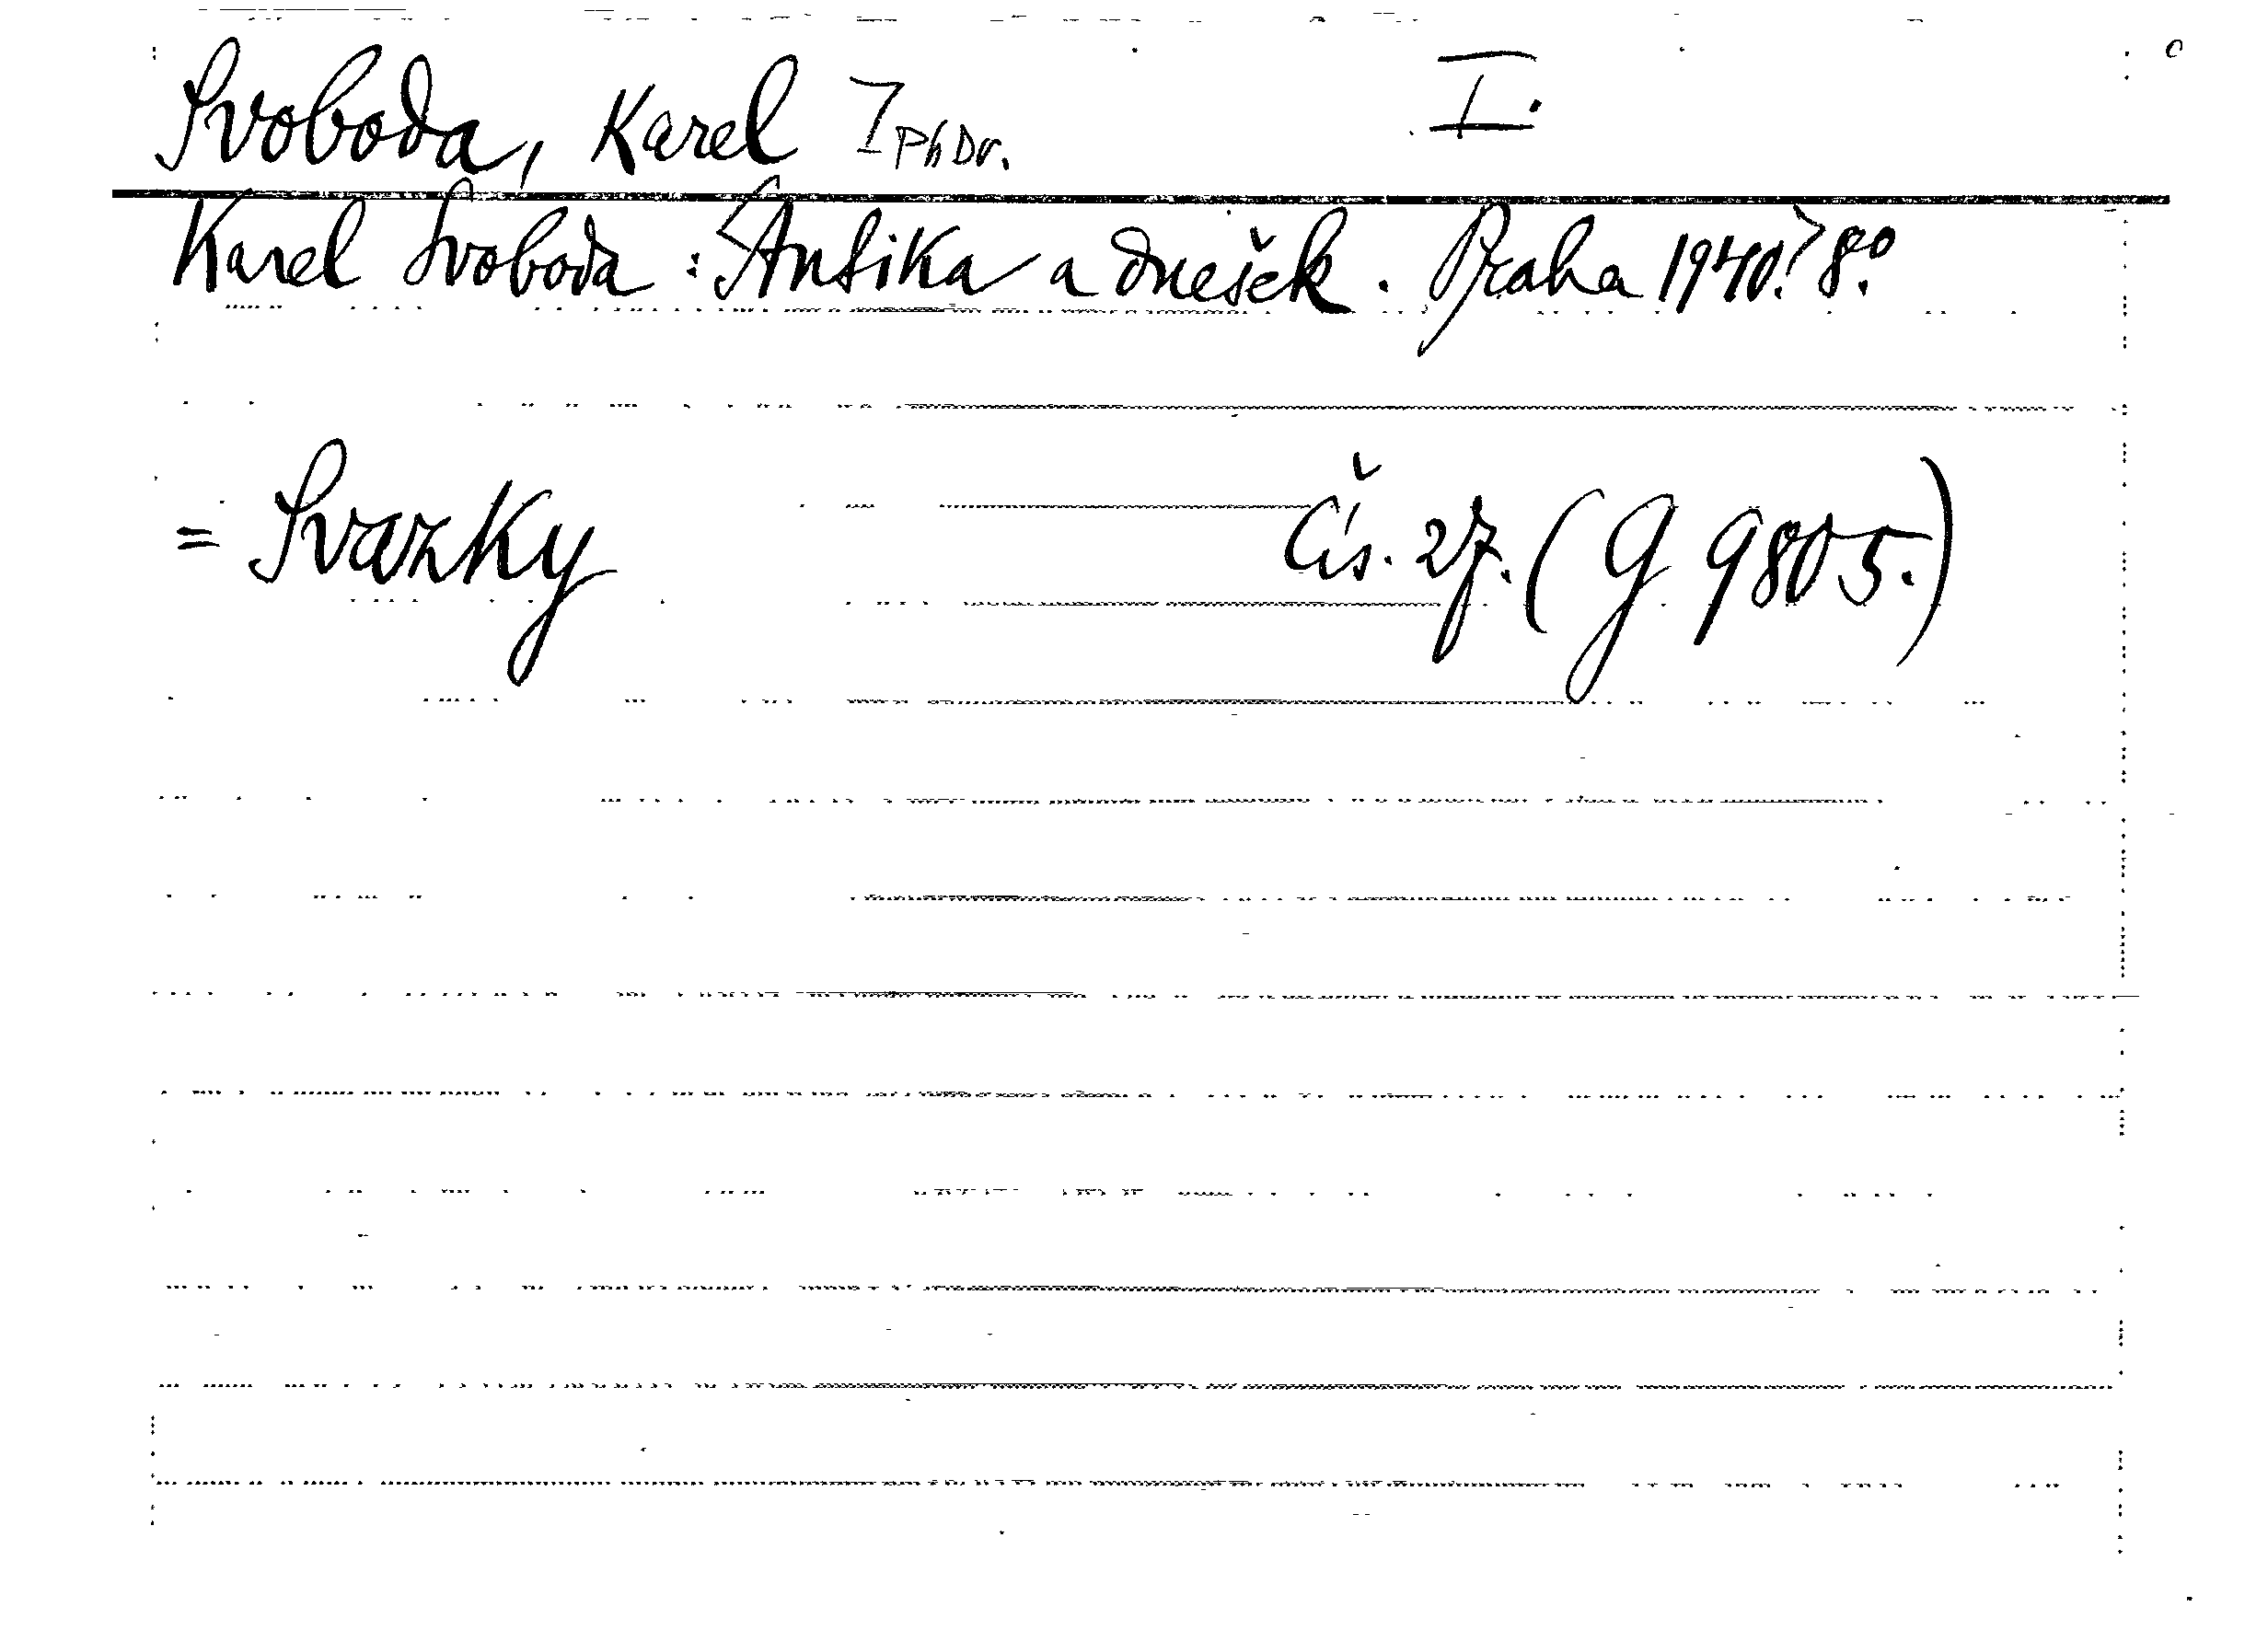 Svoboda, Karel I PhDr. I.
Karel Svoboda: Antika a dnešek. Praha 1940. 8º.
= Svazky čís. 27. (G 9805.)